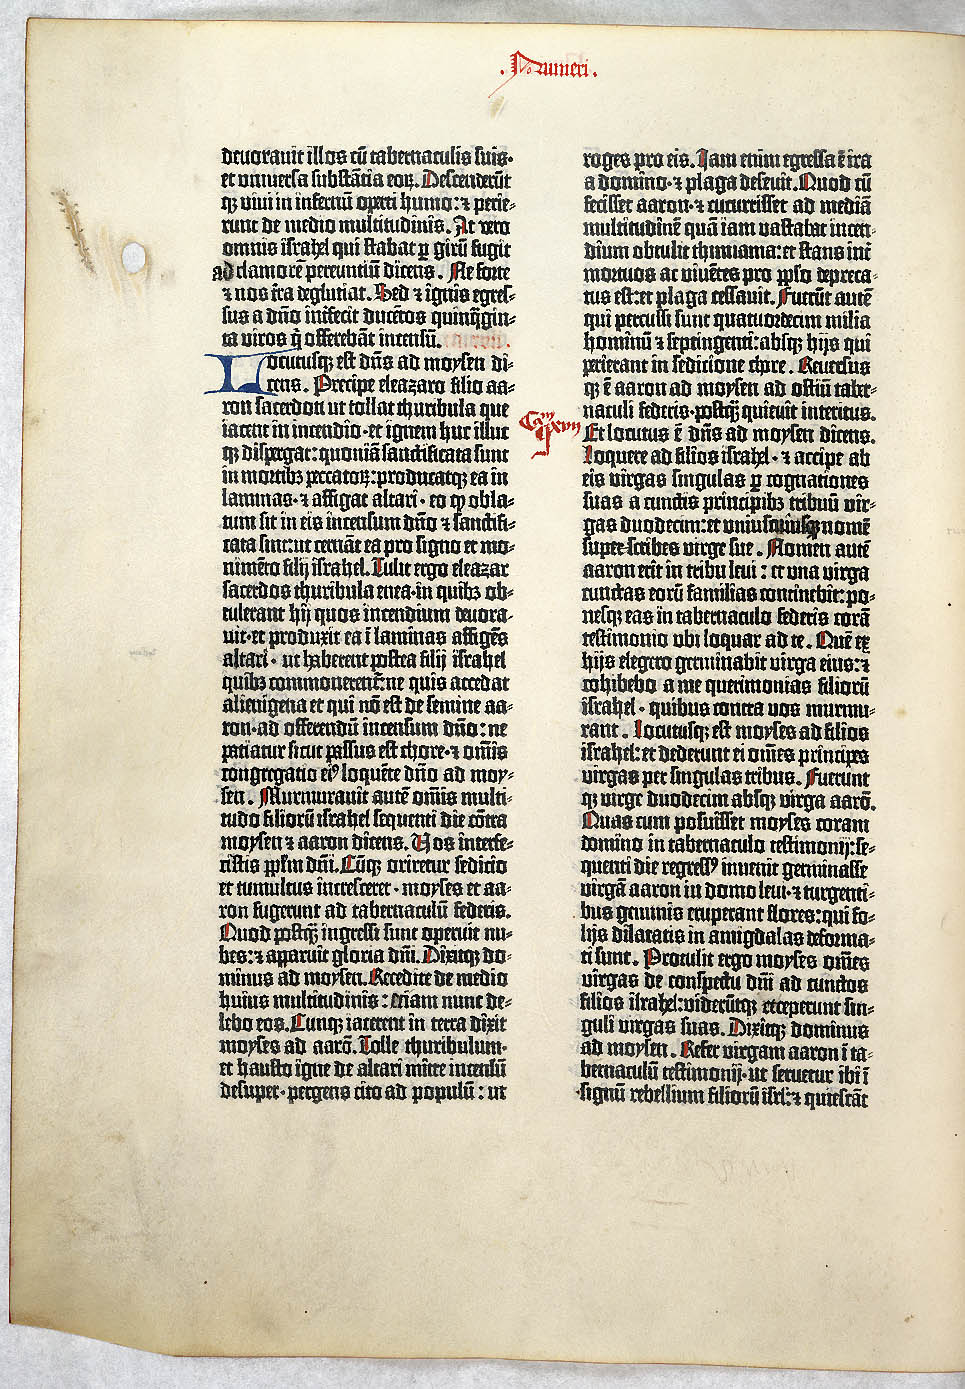 .Numeri.
devorauit illos cū tabernaculis suis·
et vniuersa substācia eoꝝ. Descenderūt
qꝫ viui in infernū operti humo: ⁊ perie-
runt de medio multitudinis. At vero
omnis israhel qui stabat ꝑ girū fugit
ad clamorē pereuntiū dicens. Ne forte
⁊ nos t̄ra deglutiat. Sed ⁊ ignis egres-
sus a dn̄o int̄fecit ducētos quinq̄gin-
ta viros q̇ offerebāt incensū.
Locutusqꝫ est dn̄s ad moysen di-
cens. Precipe eleazaro filio aa-
ron sacerdoti ut tollat thuribula que
iacent in incendio·et ignem huc illuc
qꝫ dispergat: quoniā sanctificata sunt
in mortibꝫ peccatoꝝ: producatqꝫ ea in
laminas·⁊ affigat altari·eo ꝙ obla-
tum sit in eis incensum dn̄o ⁊ sanctifi-
cata sint: ut cernāt ea pro signo et mo-
nimēto filij israhel. Tulit ergo eleazar
sacerdos thuribula enea·in quibꝫ ob-
tulerant hij quos incendium deuora-
uit·et produxit ea ī laminas affigēs
altari·ut haberent postea filij israhel
quibꝫ commonerent᷑: ne quis accedat
alienigena et qui nō est de semine aa-
ron·ad offerendū incensum dn̄o: ne
patiatur sicut passus est chore·⁊ om̄is
congregatio eiꝰ loquēte dn̄o ad moy-
sen. Murmurauit autē om̄is multi-
tudo filiorū israhel sequenti die cōtra
moysen ⁊ aaron dicens. Vos interfe-
cistis ppl̄m dn̄i. Cūqꝫ oriretur sedicio
et tumultus incresceret·moyses et aa-
ron fugerunt ad tabernaculū federis.
Quod postq̄ꝫ ingressi sunt operuit nu-
bes: ⁊ apparuit gloria dn̄i. Dixitqꝫ do-
minus ad moysen. Recedite de medio
huius multitudinis: etiam nunc de-
lebo eos. Cunqꝫ iacerent in terra dixit
moyses ad aarō. Tolle thuribulum·
et hausto igne de altari mitte incensū
desuper·pergens cito ad populū: ut
roges pro eis. Iam enim egressa ē ira
a domino·⁊ plaga deseuit. Quod cū
fecisset aaron·⁊ cucurrisset ad mediā
multitudinē quā iam vastabat incen-
dium obtulit thimiama: et stans int̄
mortuos ac viuētes pro pp̄lo depreca-
tus est: et plaga cessauit. Fuerūt autē
qui percussi sunt quatuordecim milia
hominū ⁊ septingenti: absqꝫ hijs qui
perierant in sedicione chore. Reuersus
qꝫ ē aaron ad moysen ad ostiū taber-
naculi federis·postq̄ꝫ quieuit interitus.
Cam̄ xvij
Et locutus ē dn̄s ad moysen dicens.
Loquere ad filios israhel·⁊ accipe ab
eis virgas singulas ꝑ cognationes
suas a cunctis principibꝫ tribuū vir-
gas duodecim: et vniuscuiusqꝫ nomē
superscribes virge sue. Nomen autē
aaron erit in tribu leui: et vna virga
cunctas eorū familias continebit: po-
nesqꝫ eas in tabernaculo federis corā
testimonio vbi loquar ad te. Quē ex
hijs elegero germinabit virga eius: ⁊
cohibebo a me querimonias filiorū
israhel·quibus contra vos murmu-
rant. Locutusqꝫ est moyses ad filios
israhel: et dederunt ei om̄es principes
virgas per singulas tribus. Fuerunt
qꝫ virge duodecim absqꝫ virga aarō.
Quas cum posuisset moyses coram
domino in tabernaculo testimonij: se-
quenti die regressꝰ inuenit germinasse
virgā aaron in domo leui·⁊ turgenti-
bus gemmis eruperant flores: qui fo-
lijs dilatatis in amigdalas deforma-
ti sunt. Protulit ergo moyses om̄es
virgas de conspectu dn̄i ad cunctos
filios israhel: viderūtqꝫ ⁊ receperunt sin-
guli virgas suas. Dixitqꝫ dominus
ad moysen. Refer virgam aaron ī ta-
bernaculū testimonij·ut seruetur ibi ī
signū rebellium filiorū isrl̄: ⁊ quiescāt